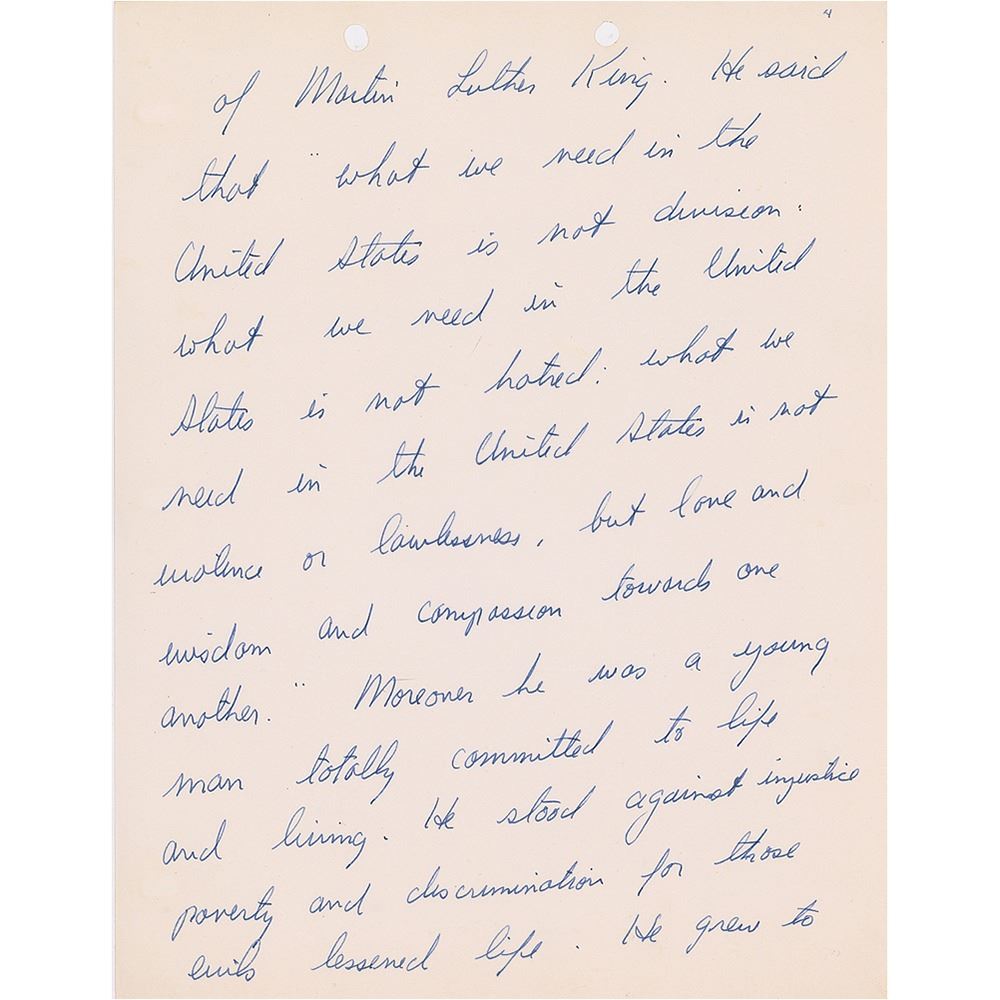 4
of Martin Luther King. He said
that "what we need in the
United States is not division:
what we need in the United
States is not hatred: what we
need in the United States is not
violence or lawlessness, but love and
wisdom and compassion towards one
another." Moreover he was a young
man totally committed to life
and living. He stood against injustice
poverty and discrimination for those
evils lessened life. He grew to